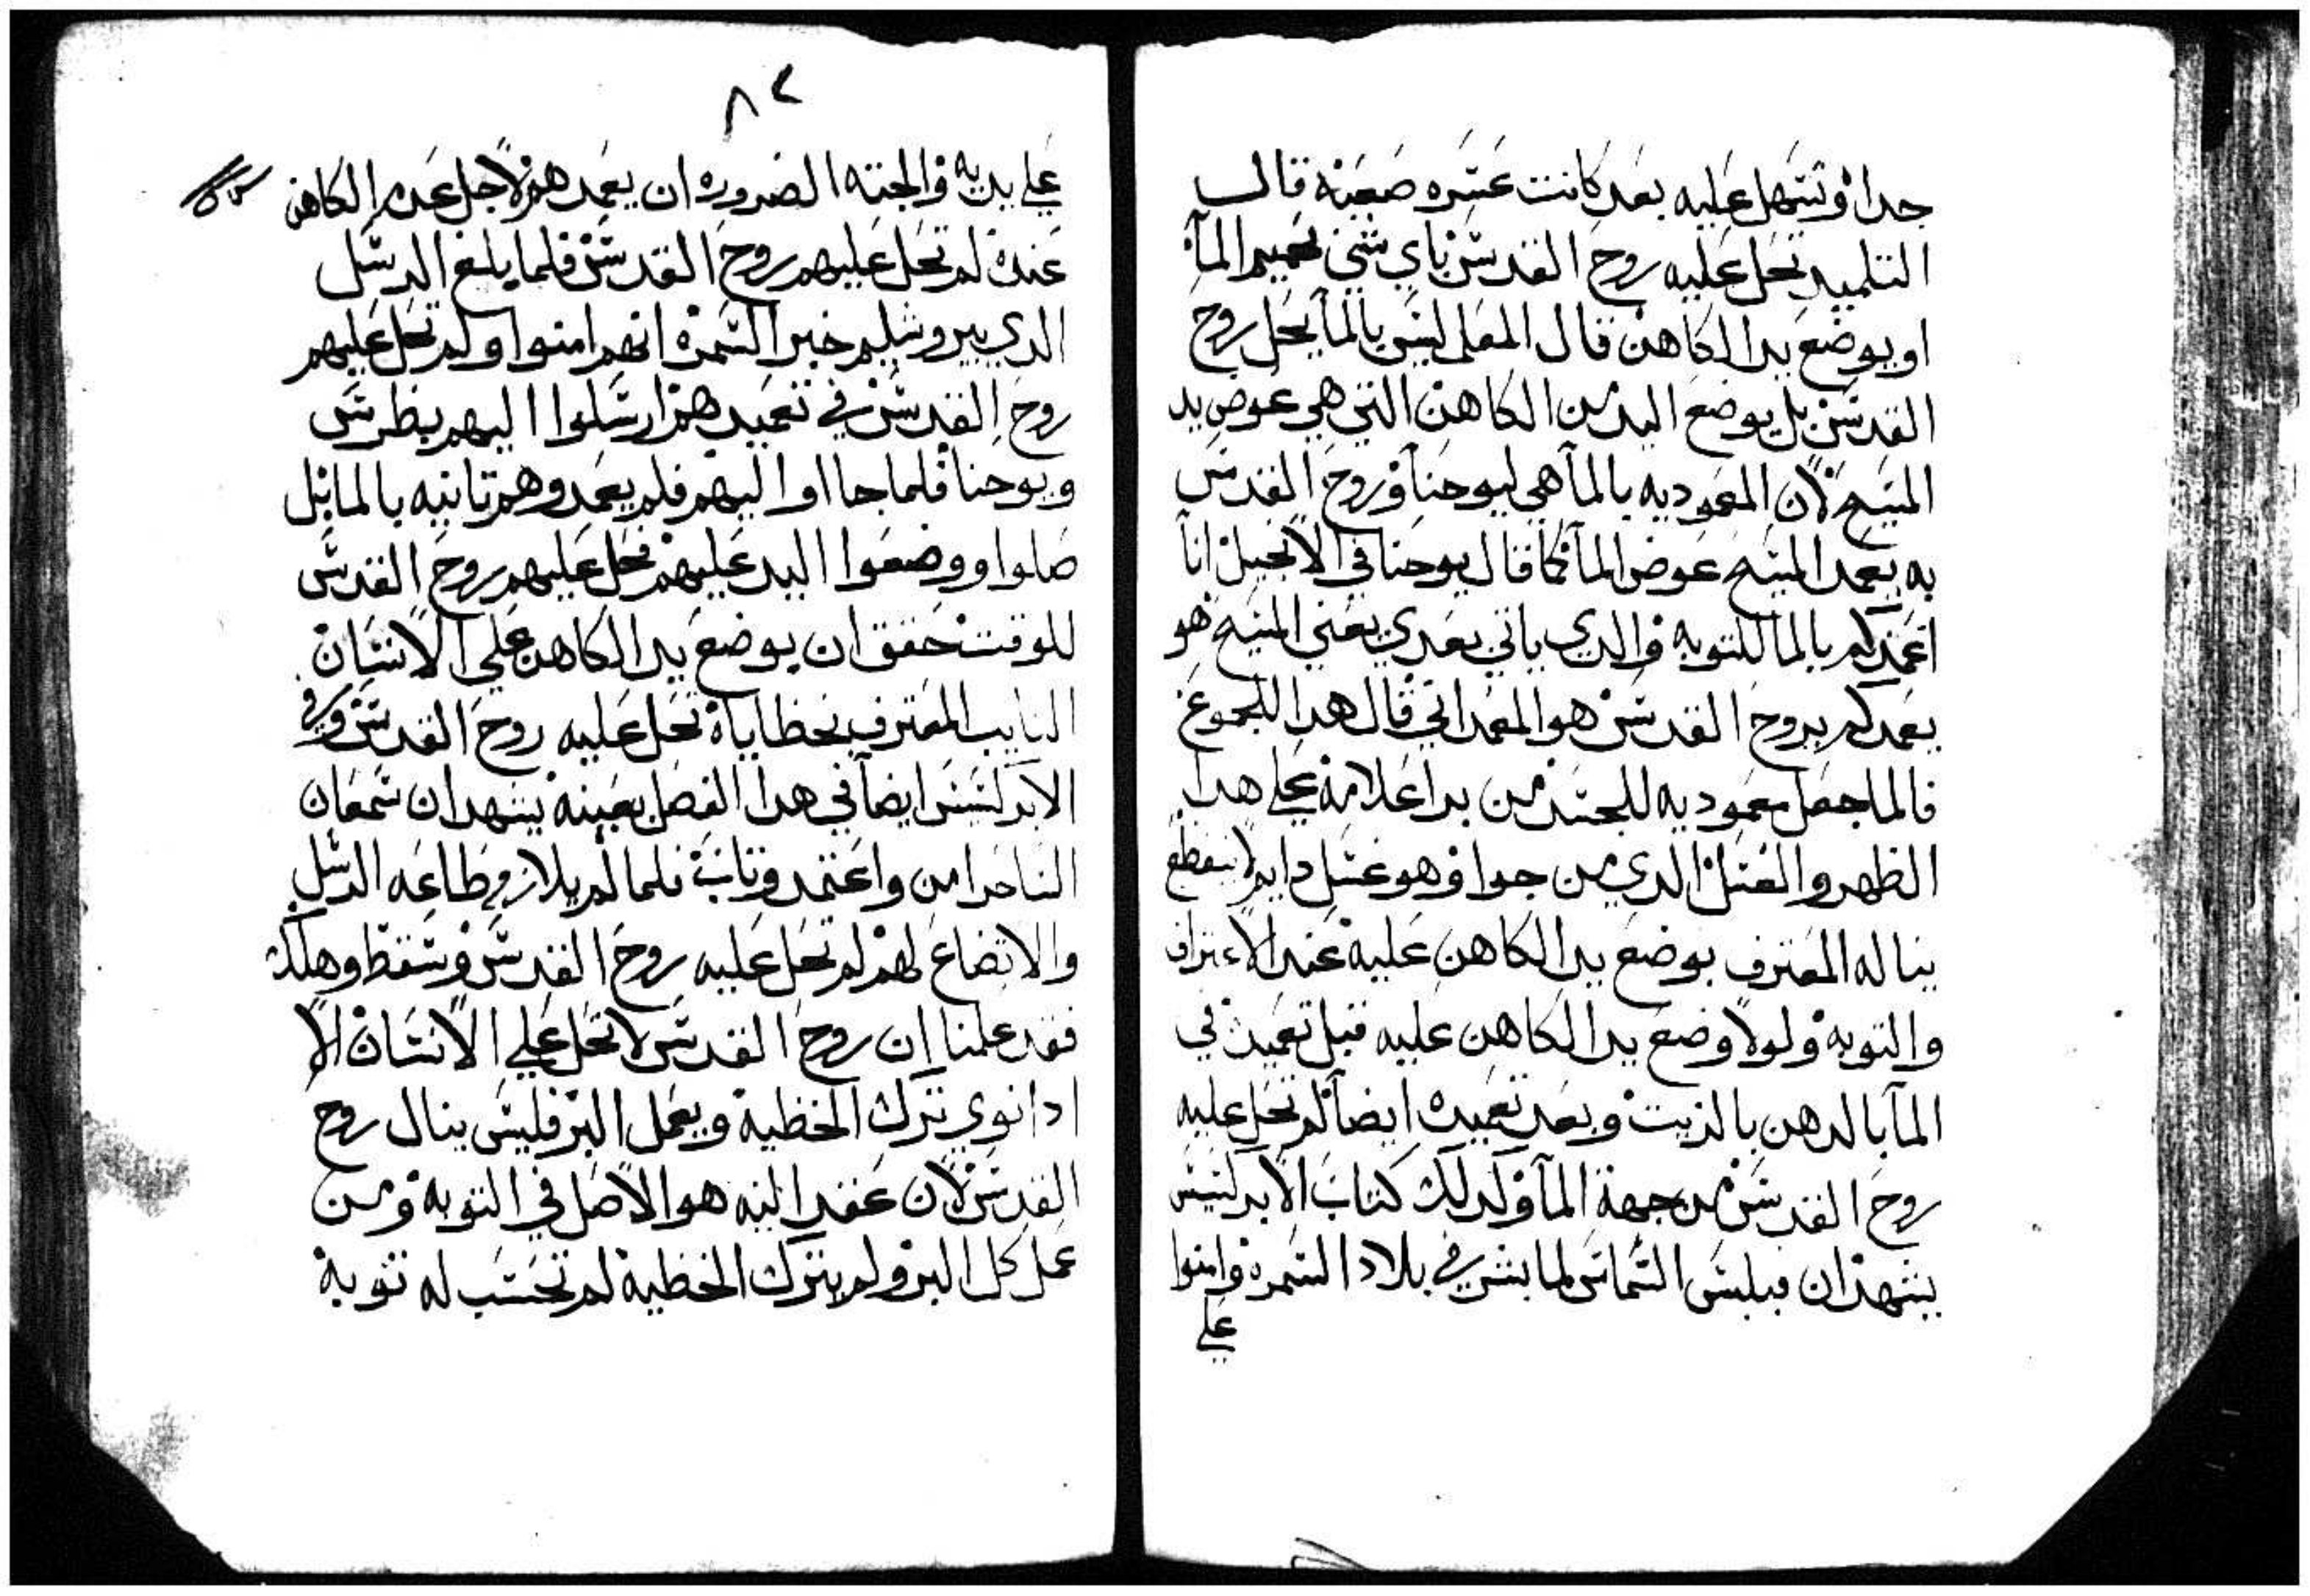 جدا وتسهل عليه بعد كانت عسره صعبة قال
التلميد تحل عليه روح القدس باي شي تعميم المآ
او بوضع يد الكاهن قال المعلم ليس بالمآ يحل روح
القدس بل بوضع اليد من الكاهن التي هي عوض يد
المسيح لان المعموديه بالمآ هي ليوحنا وروح القدس
به يعمد المسيح عوض المآ كما قال يوحنا في الانجيل انا
اعمدكم بالما للتوبه والدي ياتي بعدي يعني المسيح هو
يعمدكم بروح القدس هو المعمداني قال هدا للجموع
فالما جعل معموديه للجسد من برا علامة علي هدا
الطهر والغسل الدي من جوا وهو غسل دايم لا ينقطع
يناله المعترف بوضع يد الكاهن عليه عند الاعتراف
والتوبة ولولا وضع يد الكاهن عليه قبل تعميده في
المآ بالدهن بالزيت وبعد تعميده ايضا لم تحل عليه
روح القدس من جهة المآ وكدلك كتاب الابركسيس
يشهد ان فيلبس الشماس لما بشر في بلاد السمره وامنوا
علي
٨٢
علي يديه والجته الضروره ان يعمدهم لاجل عدم الكاهن
عنده لم تحل عليهم روح القدس فلما بلغ الرسل
الدي بيروشليم خبر السمرة انهم امنوا ولم تحل عليهم
روح القدس في تعميدهم ارسلوا اليهم بطرس
ويوحنا فلما جااوا اليهم فلم يعمدوهم تانيه بالما بل
صلوا ووضعوا اليد عليهم فحل عليهم روح القدس
للوقت حقق ان بوضع يد الكاهن علي الانسان
التايب المعترف بخطاياه تحل عليه روح القدس وفي
الابركسيس ايضا في هدا الفصل بعينه يشهد ان سمعان
الساحر امن واعتمد وتاب فلما لم يلازم طاعه الرسل
والاتضاع لهم لم تحل عليه روح القدس وسقط وهلك
فقد علمنا ان روح القدس لا تحل علي الانسان الا
ادا نوي ترك الخطية ويعمل البر فليس ينال روح
القدس لان عقد النيه هو الاصل في التوبه ومن
عمل كل البر ولم يترك الخطية لم تحسب له توبة